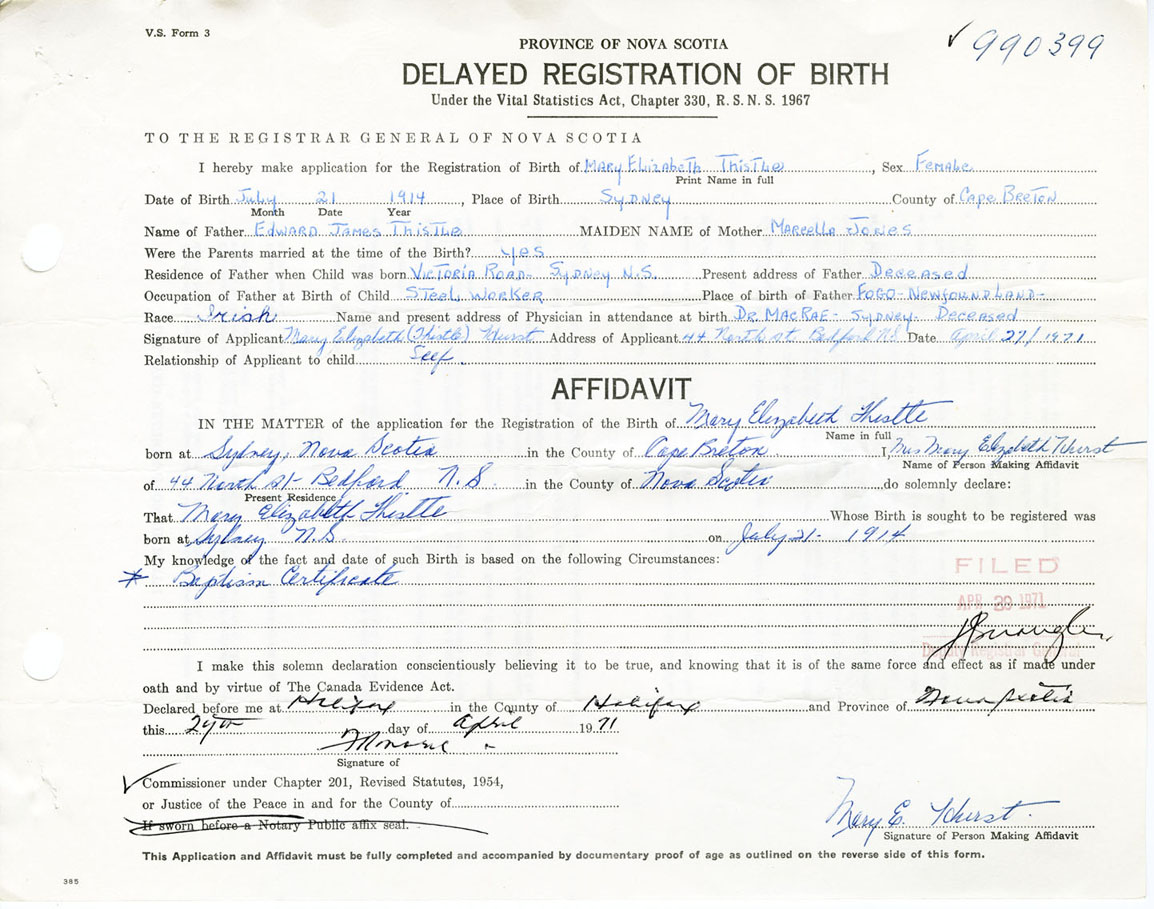 V.S. Form 3
✓ 990399
PROVINCE OF NOVA SCOTIA
DELAYED REGISTRATION OF BIRTH
Under the Vital Statistics Act, Chapter 330, R.S.N.S. 1967
TO THE REGISTRAR GENERAL OF NOVA SCOTIA
I hereby make application for the Registration of Birth of Mary Elizabeth Thistle, Sex Female
Print Name in full
Date of Birth July 21 1914, Place of Birth Sydney County of Cape Breton
Month Date Year
Name of Father Edward James Thistle MAIDEN NAME of Mother Marcella Jones
Were the Parents married at the time of the Birth? yes
Residence of Father when Child was born Victoria Road - Sydney N.S. Present address of Father Deceased
Occupation of Father at Birth of Child Steel Worker Place of birth of Father Fogo - Newfoundland -
Race Irish Name and present address of Physician in attendance at birth Dr. MacRae - Sydney - Deceased
Signature of Applicant Mary Elizabeth (Thistle) Hurst Address of Applicant 44 North St Bedford NS Date April 27/1971
Relationship of Applicant to child Self.
AFFIDAVIT
IN THE MATTER of the application for the Registration of the Birth of Mary Elizabeth Thistle
Name in full
born at Sydney, Nova Scotia in the County of Cape Breton I, Mrs Mary Elizabeth Hurst
Name of Person Making Affidavit
of 44 North St - Bedford N.S. in the County of Nova Scotia do solemnly declare:
Present Residence
That Mary Elizabeth Thistle Whose Birth is sought to be registered was
born at Sydney N.S. on July 21 - 1914
My knowledge of the fact and date of such Birth is based on the following Circumstances:
* Baptism Certificate
FILED
APR 29 1971
Deputy Registrar General
I make this solemn declaration conscientiously believing it to be true, and knowing that it is of the same force and effect as if made under
oath and by virtue of The Canada Evidence Act.
Declared before me at Halifax in the County of Halifax and Province of Nova Scotia
this day of April 1971
Signature of
✓ Commissioner under Chapter 201, Revised Statutes, 1954,
or Justice of the Peace in and for the County of
If sworn before a Notary Public affix seal.
Mary E. Hurst
Signature of Person Making Affidavit
This Application and Affidavit must be fully completed and accompanied by documentary proof of age as outlined on the reverse side of this form.
385